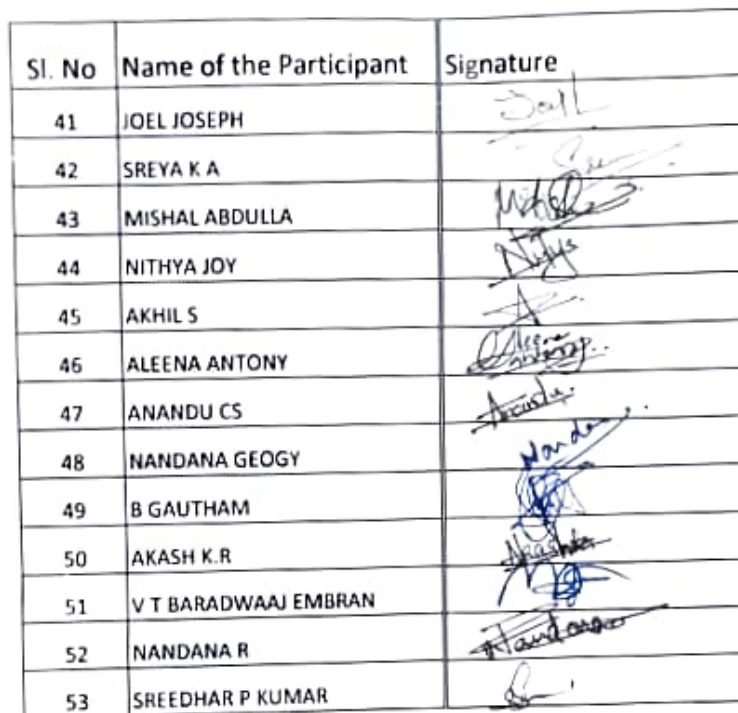 Sl. No Name of the Participant Signature
41 JOEL JOSEPH Joel
42 SREYA K A
43 MISHAL ABDULLA
44 NITHYA JOY
45 AKHIL S
46 ALEENA ANTONY Aleena Antony
47 ANANDU CS Anandu
48 NANDANA GEOGY Nandana
49 B GAUTHAM
50 AKASH K.R
51 V T BARADWAAJ EMBRAN
52 NANDANA R Nandana
53 SREEDHAR P KUMAR